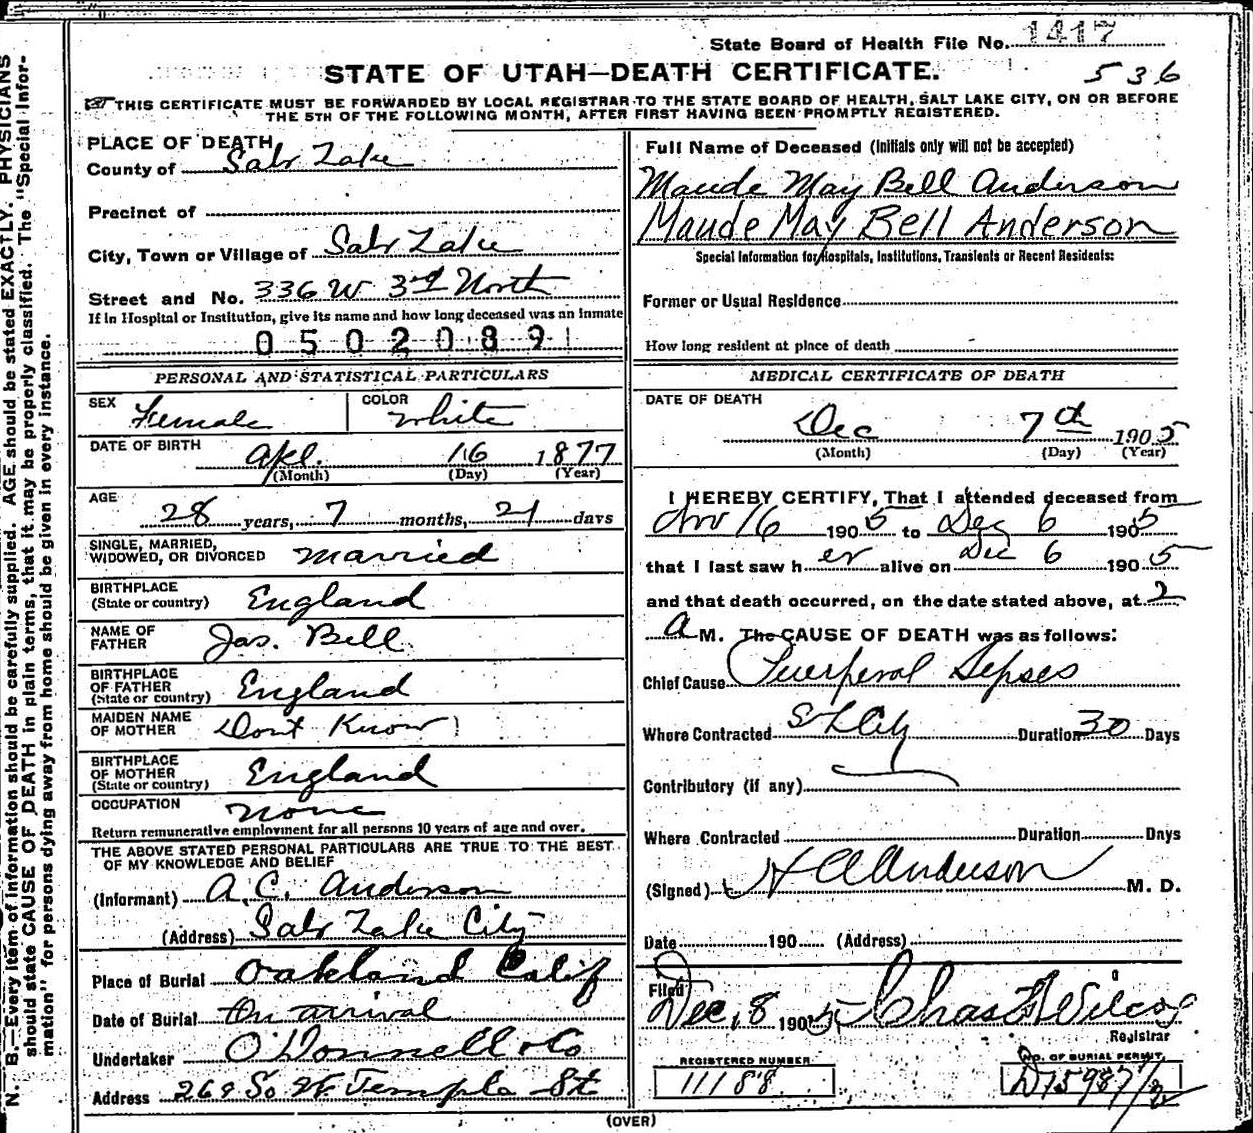 State Board of Health File No. 1417
STATE OF UTAH—DEATH CERTIFICATE.
536
THIS CERTIFICATE MUST BE FORWARDED BY LOCAL REGISTRAR TO THE STATE BOARD OF HEALTH, SALT LAKE CITY, ON OR BEFORE
THE 5TH OF THE FOLLOWING MONTH, AFTER FIRST HAVING BEEN PROMPTLY REGISTERED.
N. B.—Every item of information should be carefully supplied. AGE should be stated EXACTLY. PHYSICIANS
should state CAUSE OF DEATH in plain terms, that it may be properly classified. The "Special Infor-
mation" for persons dying away from home should be given in every instance.
PLACE OF DEATH
County of Salt Lake
Precinct of
City, Town or Village of Salt Lake
Street and No. 336 W 3rd North
If in Hospital or Institution, give its name and how long deceased was an inmate
0502089
PERSONAL AND STATISTICAL PARTICULARS
SEX Female
COLOR White
DATE OF BIRTH Apl. 16 1877
(Month) (Day) (Year)
AGE
28 years, 7 months, 21 days
SINGLE, MARRIED,
WIDOWED, OR DIVORCED Married
BIRTHPLACE
(State or country) England
NAME OF
FATHER Jas. Bell
BIRTHPLACE
OF FATHER
(State or country) England
MAIDEN NAME
OF MOTHER Dont Know
BIRTHPLACE
OF MOTHER
(State or country) England
OCCUPATION None
Return remunerative employment for all persons 10 years of age and over.
THE ABOVE STATED PERSONAL PARTICULARS ARE TRUE TO THE BEST
OF MY KNOWLEDGE AND BELIEF
(Informant) A. C. Anderson
(Address) Salt Lake City
Place of Burial Oakland Calif
Date of Burial On arrival
Undertaker O'Donnell & Co
Address 269 So W. Temple St
Full Name of Deceased (Initials only will not be accepted)
Maude May Bell Anderson
Maude May Bell Anderson
Special Information for Hospitals, Institutions, Transients or Recent Residents:
Former or Usual Residence
How long resident at place of death
MEDICAL CERTIFICATE OF DEATH
DATE OF DEATH
Dec 7th 1905
(Month) (Day) (Year)
I HEREBY CERTIFY, That I attended deceased from
Nov 16 1905 to Dec 6 1905
that I last saw her alive on Dec 6 1905
and that death occurred, on the date stated above, at 2
A M. The CAUSE OF DEATH was as follows:
Chief Cause Puerperal Sepses
Where Contracted S L City Duration 30 Days
Contributory (if any)
Where Contracted Duration Days
(Signed) H A Anderson M. D.
Date 190 (Address)
Filed
Dec, 8 1905 Chas F Wilcox
Registrar
REGISTERED NUMBER
11188
NO. OF BURIAL PERMIT
(OVER)